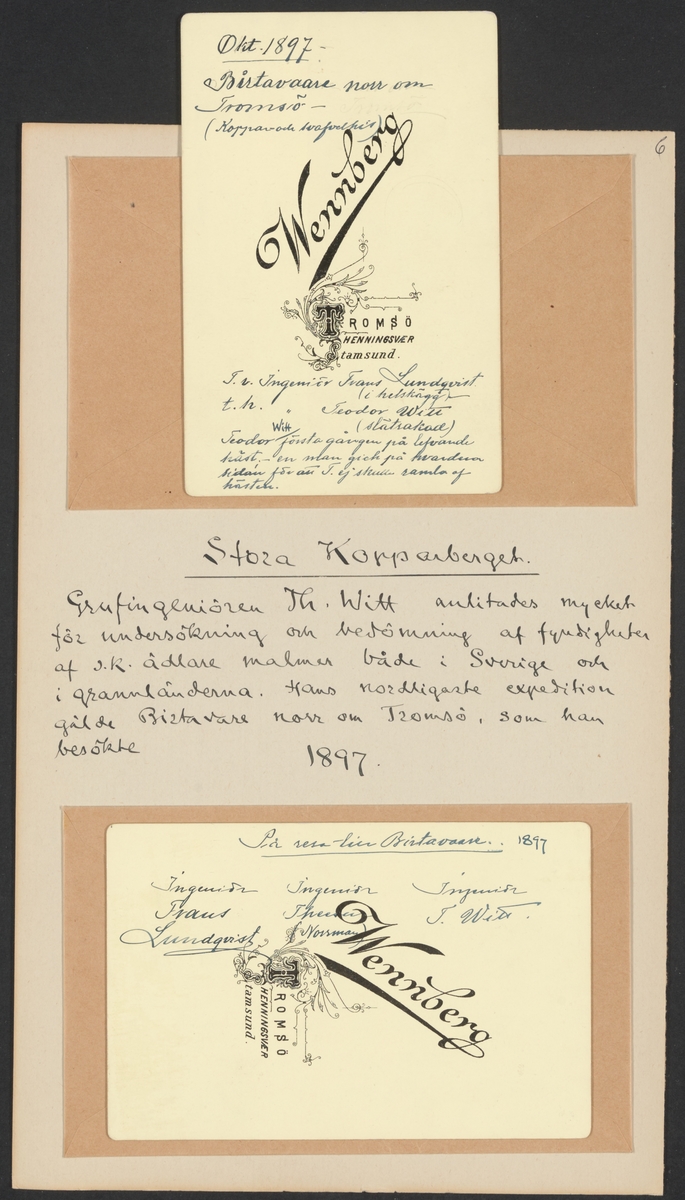 6
Okt. 1897 –
Birtavaare norr om
Tromsö –
(Koppar och svafvelkis)
Wennberg
TROMSÖ
HENNINGSVÆR
Stamsund.
T.v. Ingeniör Frans Lundqvist
(i helskägg) –
t.h. " Teodor Witt
(slätrakad)
Witt
Teodor första gången på lefvande
häst. – en man gick på hvardera
sidan för att T. ej skulle ramla af
hästen.
Stora Kopparberget.
Grufingeniören Th. Witt anlitades mycket
för undersökning och bedömning af fyndigheter
af s.k. ädlare malmer både i Sverige och
i grannländerna. Hans nordligaste expedition
gälde Birtavare norr om Tromsö, som han
besökte 1897.
På resa till Birtavaare. 1897
Ingeniör Ingeniör Ingeniör
Frans T. Witt.
Lundqvist (Norrman)
Wennberg
TROMSÖ
HENNINGSVÆR
Stamsund.